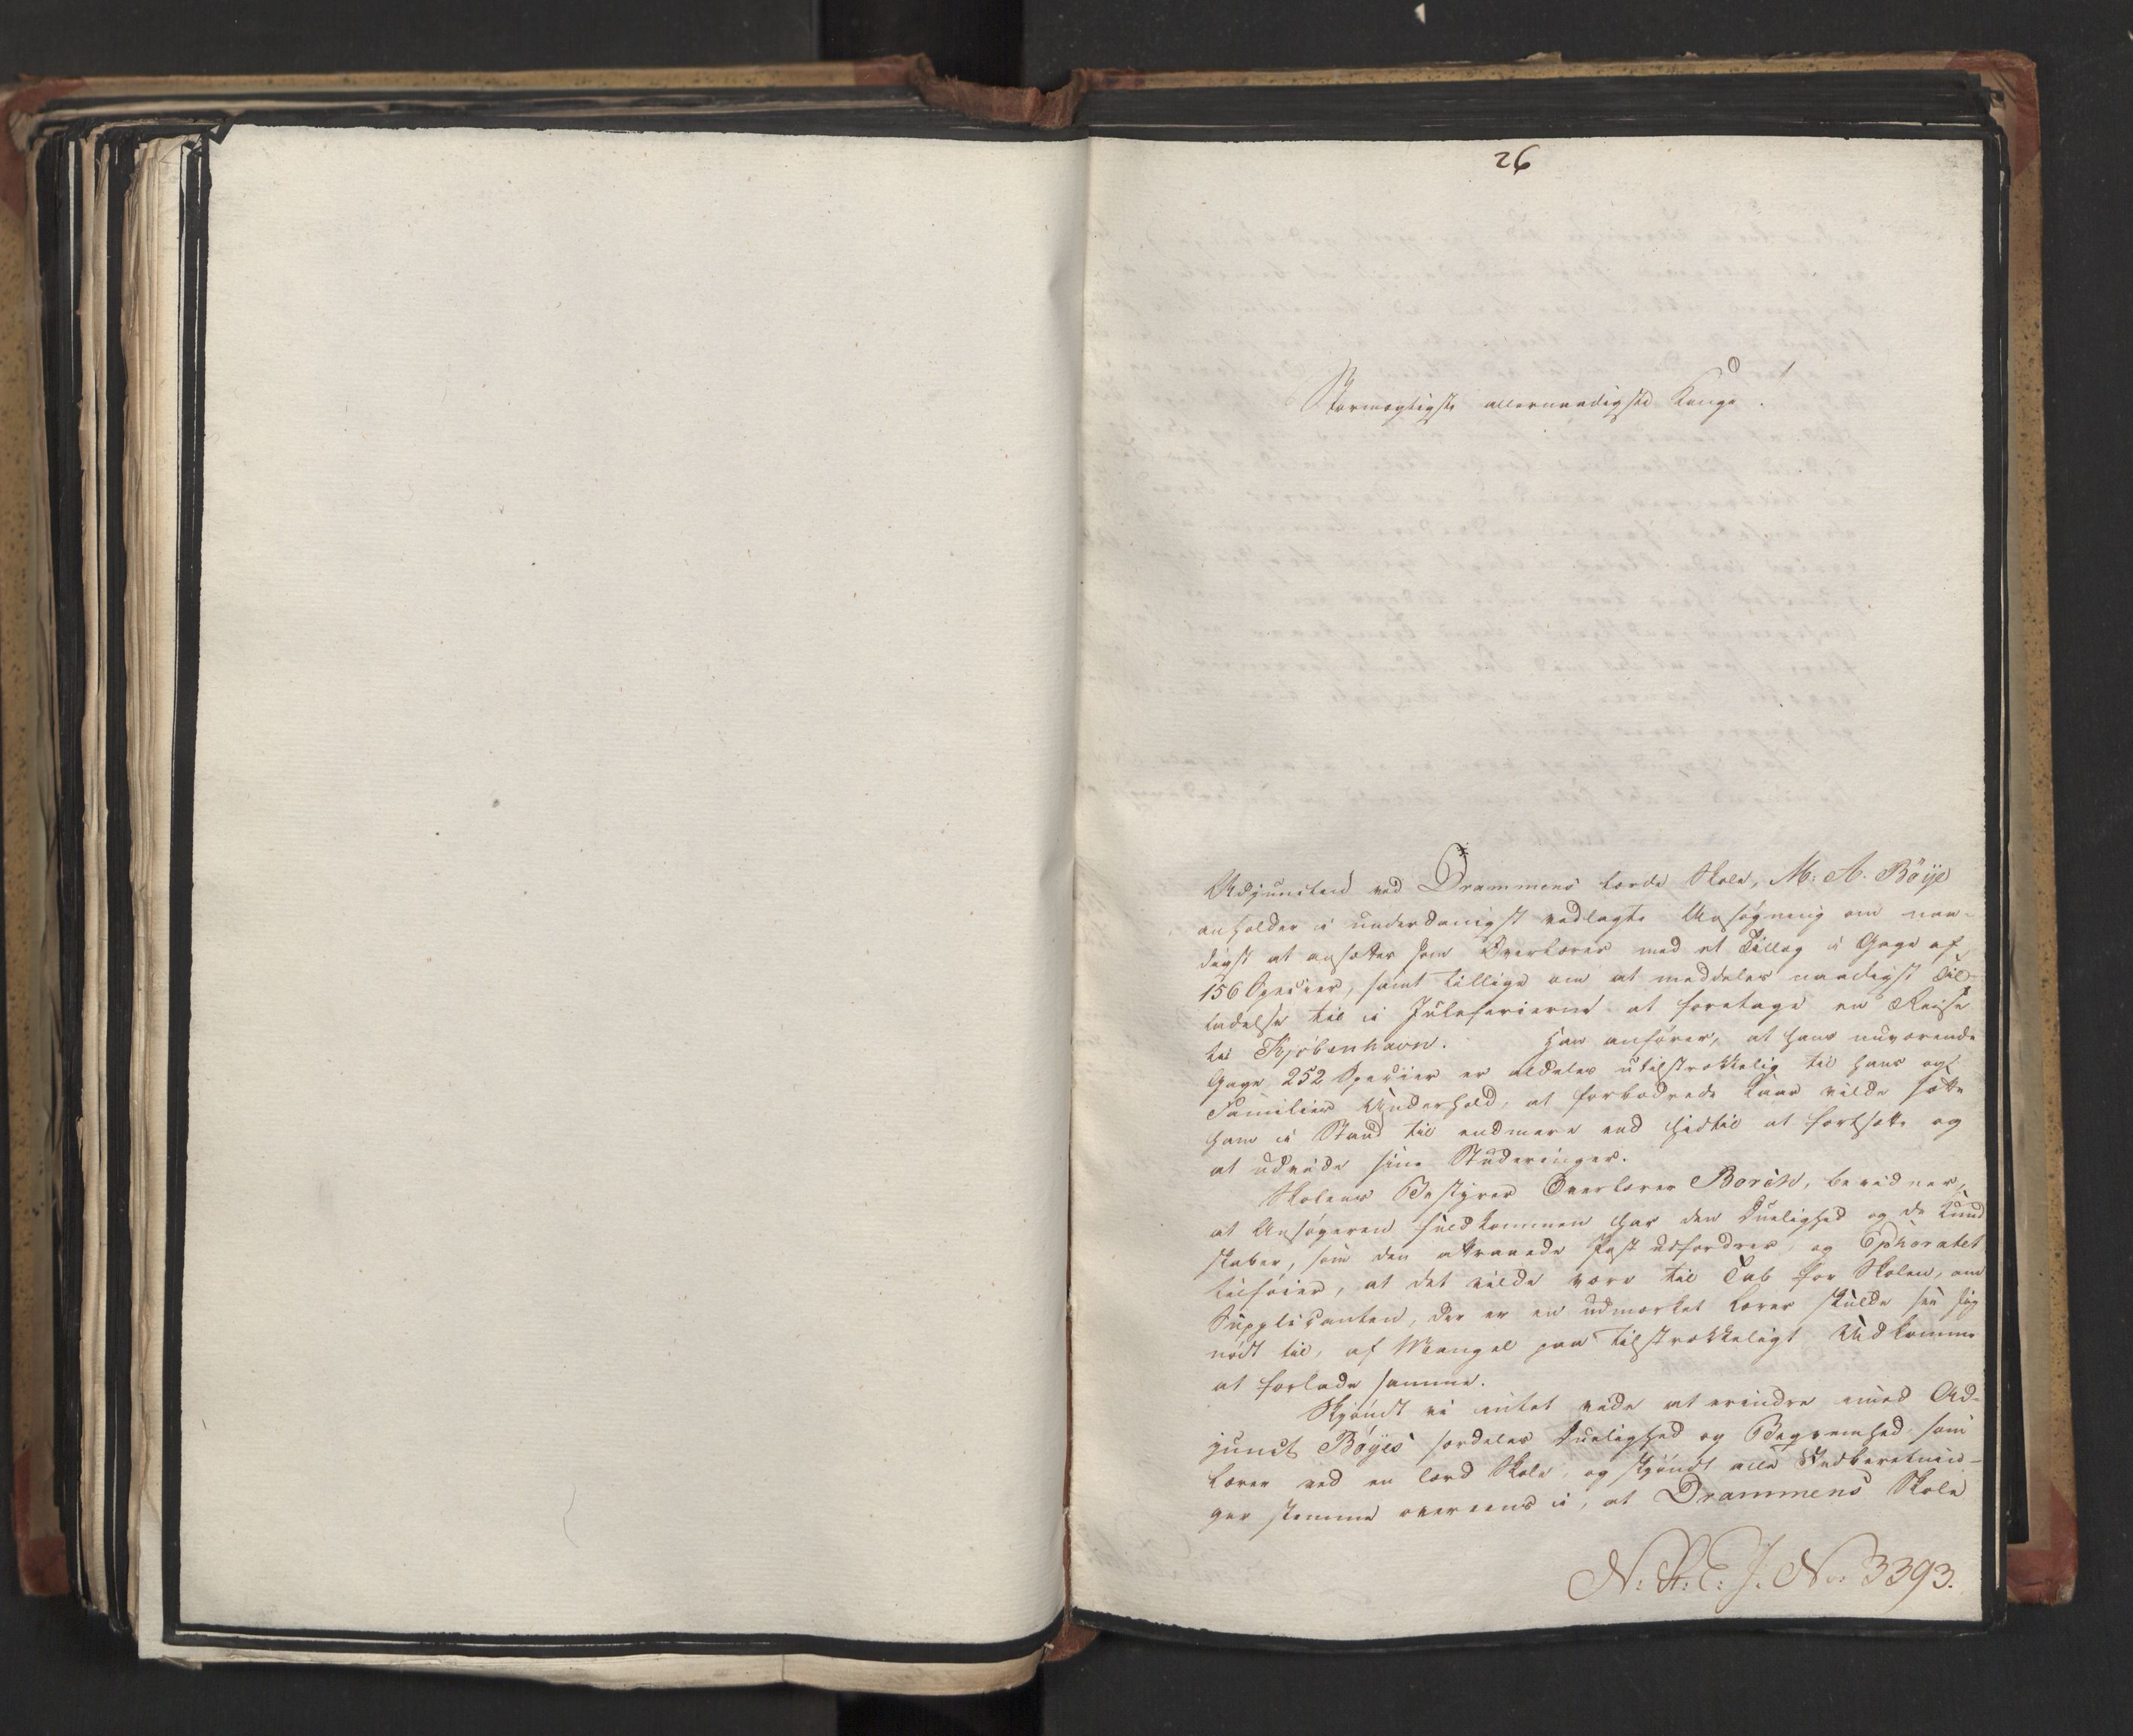 26
Stormægtigste allernaadigste Konge!
Adjuncten ved Drammens lærde Skole, M. A. Böÿe
anholder i underdanigst vedlagte Ansøgning om naa-
digst at ansættes som Overlærer med et Tillæg i Gage af
156 Specier, samt tillige om at meddeles naadigst Til-
ladelse til i Juleferierne at foretage en Reise
til Kjøbenhavn. Han anfører, at hans nuværende
Gage 252 Specier er aldeles utilstrækkelig til hans og
Families Underhold, at forbedrede Kaar vilde sætte
ham i Stand til endmere end hidtil at fortsætte og
at udvide sine Studeringer.
Skolens Bestyrer Overlærer Borch, bevidner,
at Ansøgeren fuldkommen har den Duelighed og de Kund
skaber, som den attraaede Post udfordrer, og Ephoratet
tilføier, at det vilde være til Tab for Skolen, om
Supplicanten, der er en udmærket Lærer skulde see sig
nødt til, af Mangel paa tilstrækkeligt Udkomme
at forlade samme.
Skjøndt vi intet vide at erindre imod Ad-
junct Bøÿes særdeles Duelighed og Beqvemhed som
Lærer ved en lærd Skole, og skjøndt alle Indberetnin-
ger stemme overeens i, at Drammens Skole
N: R: E: J. No: 3393.